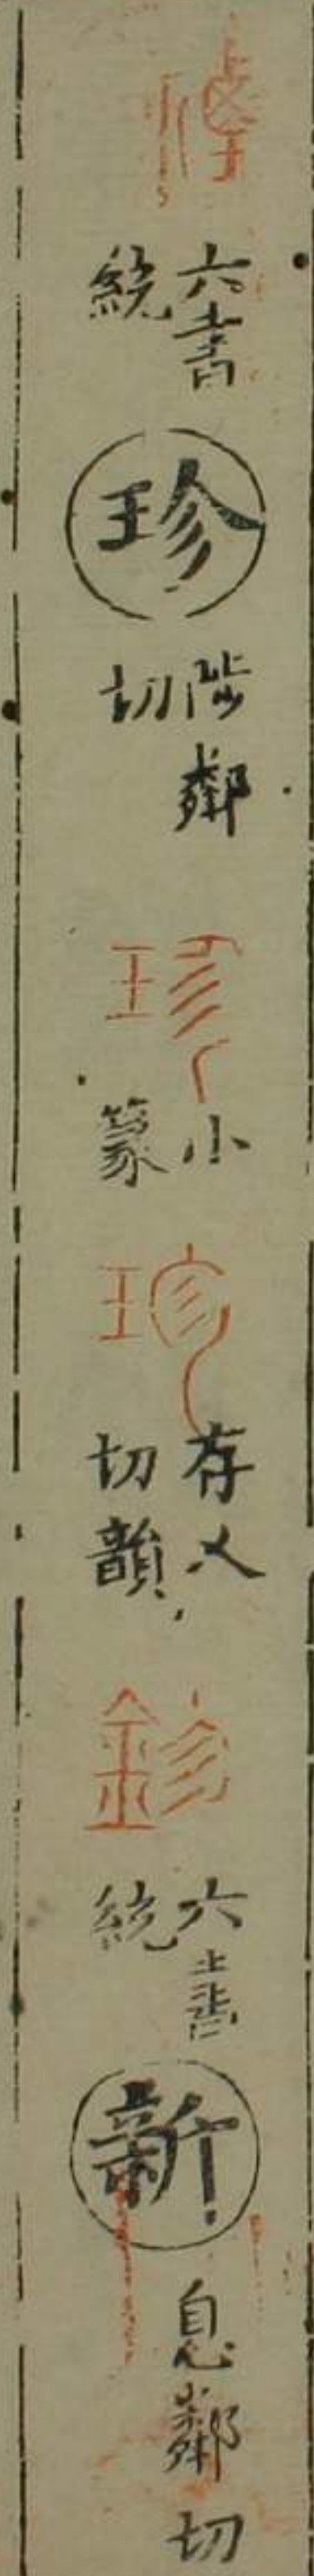 六書統珍陟鄰切珍小篆珍存乂切韻鉁六書統新息鄰切